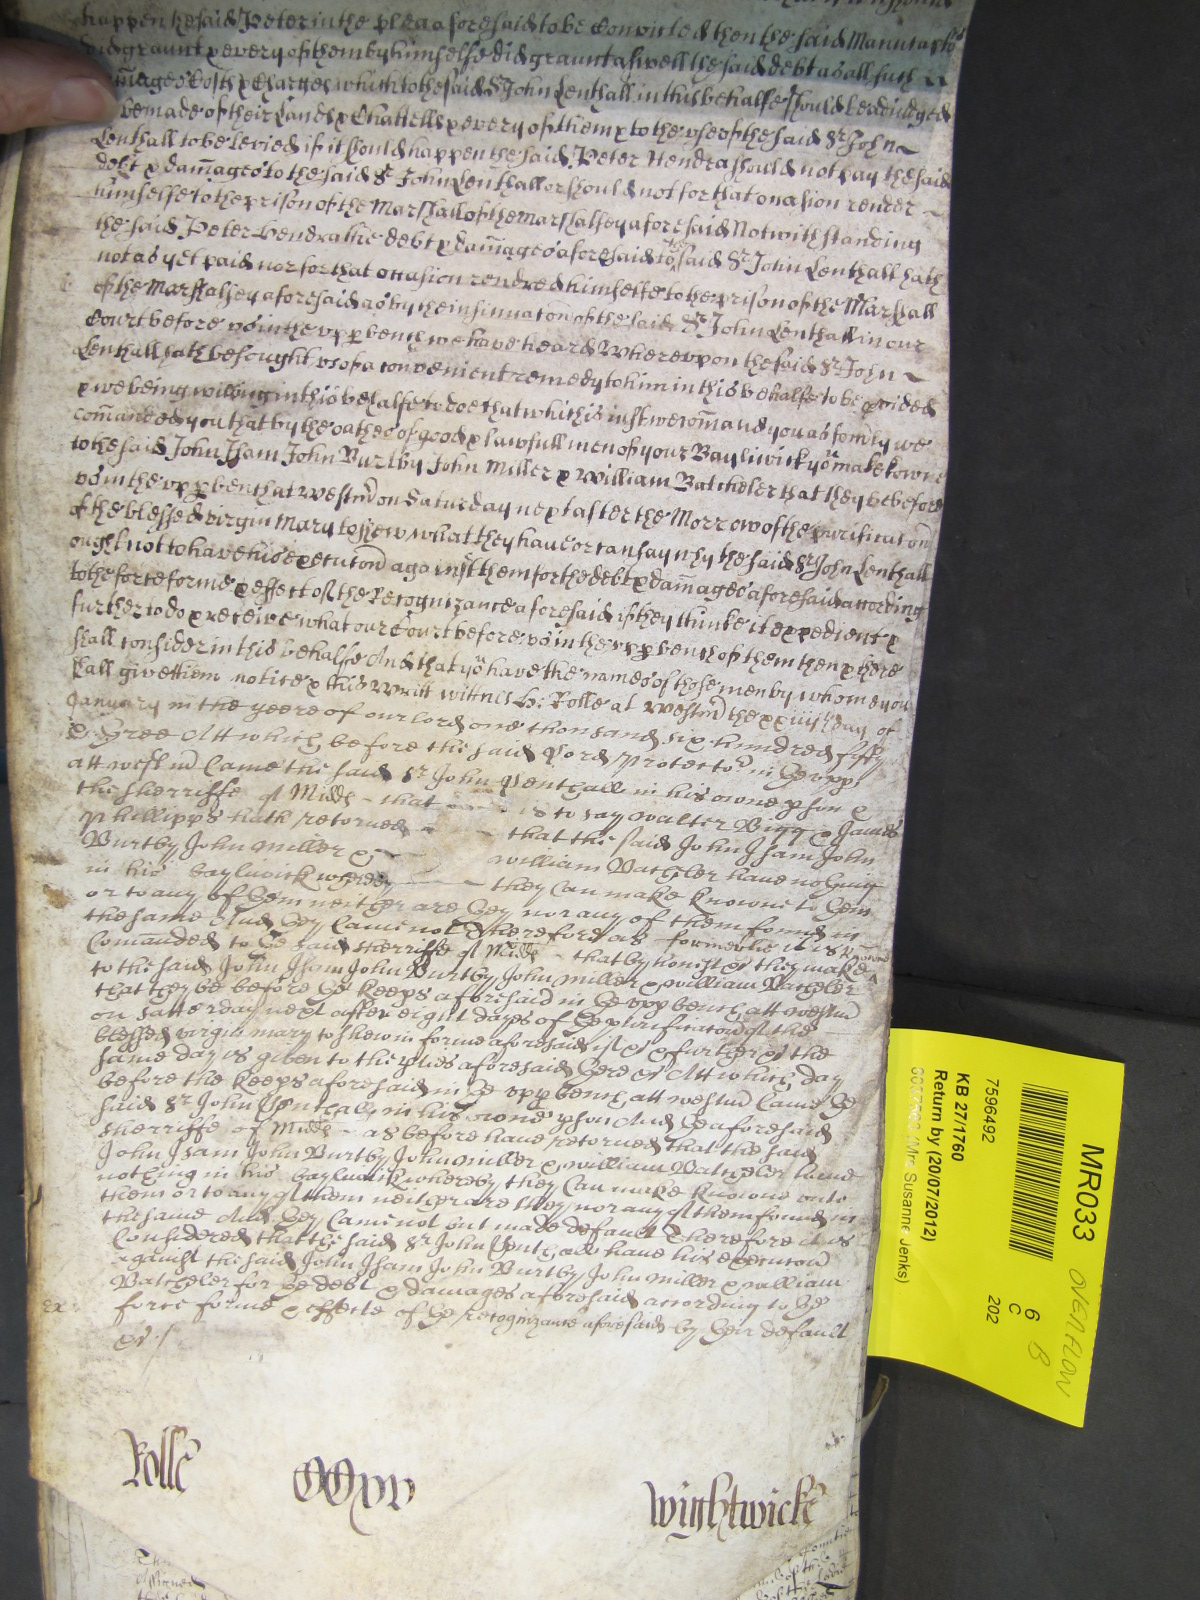 happen the said Peter in the plea aforesaid to be Convicted then the said Manucapto
did graunt & every of them by himselfe did graunt aswell the said debt as all such
damages Costs & Charges which to the said Sr John Lenthall in this behalfe should be adiudged
be made of their Lands & Chattells & every of them & to the use of the said Sr John
Lenthall to be levied if it should happen the said Peter Hendra should not pay the said
debt & dam̄ages to the said Sr John Lenthall or should not for that occasion render
himselfe to the prison of the Marshall of the marshalsey aforesaid Notwithstanding
the said Peter Hendra the debt & dam̄ages aforesaid to the said Sr John Lenthall hath
not as yet paid nor for that occasion rendred himselfe to the prison of the Marshall
of the Marshalsey aforesaid as by the insinuacon of the said Sr John Lenthall in our
Court before us in the upp bench we have heard Whereupon the said Sr John
Lenthall hath besought us of a convenient remedy to him in this behalfe to be pvided
& we being willing in this behalfe to doe that which is iust we com̄and you as formly we
com̄anded you that by the oathes of good & lawfull men of your Bayliwick you make knowne
to the said John Isam John Burtby John Miller & William Batcheler that they be before
us in the upp bench at Westm̄ on Saturday next after the Morrow of the purificacon
of the blessed virgin Mary to shew what they have or can say why the said Sr John Lenthall
ought not to have his execucon against them for the debt & dam̄ages aforesaid according
to the force forme & effect of the Recognizance aforesaid if they thinke it expedient &
further to do & receive what our Court before us in the upp bench of them then & there
shall consider in this behalfe And that you have the names of those men by whome you
shall give them notice & this Writt witnes H: Rolle at Westm̄ the xxiiijth day of
January in the yeere of our lord one thousand six hundred fifty
& three Att which before the said Lord Protector in the upp
att westm̄ Came the said Sr John Lenthall in his owne pson &
the sherriffe of Midds that is to say walter Bigg & James
Phillipps hath returned that the said John Isam John
Burtby John Miller & william Batcheler have nothing
in his bayliwick whereby they Can make knowne to them
or to any of them neither are they nor any of them found in
the same And they Came not Therefore as formerlie it is
Com̄anded to the said sherriffe of Midds that by honest &c they make knowne
to the said John Isam John Burtby John Miller & william Batcheler
that they be before the keeps aforesaid in the upp bench att westm̄
on satterday next after eight dayes of the purificacon of the
blessed virgin mary to shew in forme aforesaid if &c & further &c the
same day is given to the pties aforesaid there &c Att which day
before the keeps aforesaid in the upp bench att westm̄ Came the
said Sr John Lenthall in his owne pson And the aforesaid
sherriffe of Midds as before have returned that the said
John Isam John Burtby John Miller & william Batcheler have
nothing in his bayliwick whereby they Can make knowne unto
them or to any of them neither are they nor any of them found in
the same And they Came not but made default Therefore it is
Considered that the said Sr John Lenthall have his execucon
against the said John Isam John Burtby John Miller & william
Batcheler for the debt & damages aforesaid according to the
force forme & effecte of the recognizance aforesaid by their default
&c
Rolle
Wightwicke
MR033
OVERFLOW
6
C
B
202
7596492
KB 27/1760
Return by (20/07/2012)
(Mrs Susanne Jenks)